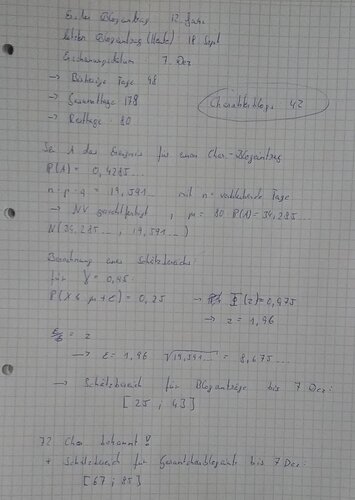 Erster Blogeintrag 12. Juni
letzter Blogeintrag (Heute) 18. Sept
Erscheinungsdatum 7. Dez
→ Bisherige Tage 98
→ Gesamttage 178
→ Resttage 80
Charakterblogs 42
Sei A das Ereignis für einen Char-Blogeintrag
P(A) = 0,4285...
n · p · q = 19,591... mit n = verbleibende Tage
→ NV gerechtfertigt, μ = 80 · P(A) = 34,285...
N(34,285..., 19,591...)
Berechnung eines Schätzbereichs:
für γ = 0,95:
P(X ≤ μ + ε) = 0,975 → Φ(z) = 0,975
→ z = 1,96
ε/σ = z
→ ε = 1,96 · √19,591... = 8,675...
→ Schätzbereich für Blogeinträge bis 7 Dez:
[25 ; 43]
42 Char bekannt!
→ Schätzbereich für Gesamtcharblogeinträge bis 7 Dez:
[67 ; 85]